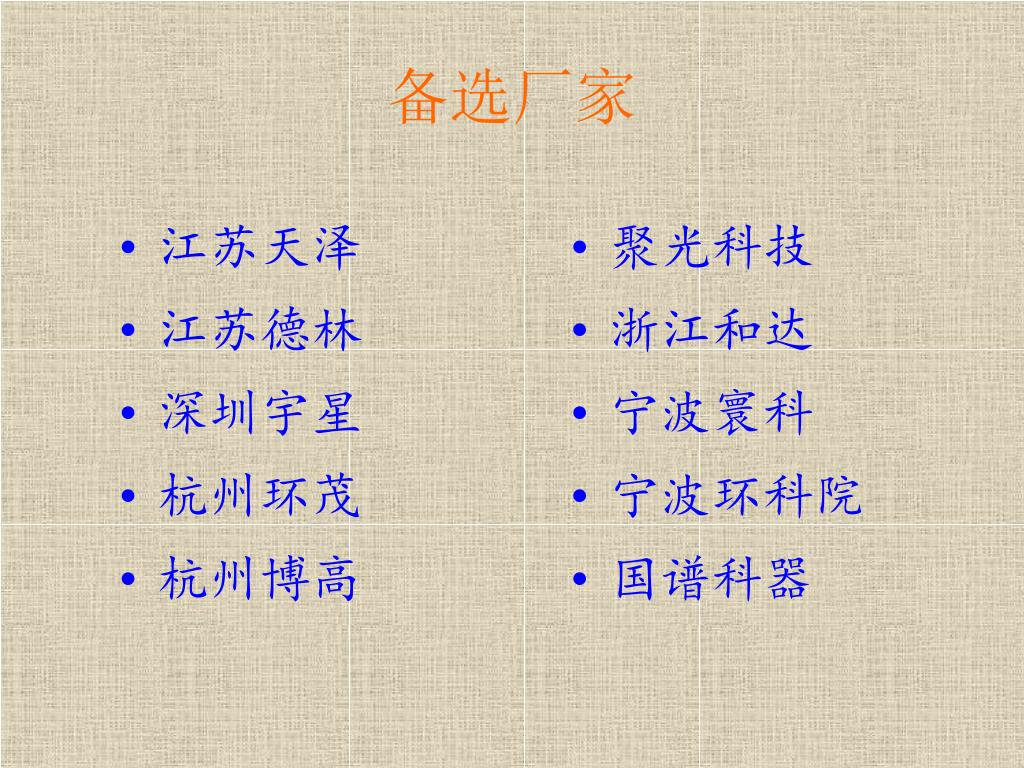 备选厂家
• 江苏天泽
• 江苏德林
• 深圳宇星
• 杭州环茂
• 杭州博高
• 聚光科技
• 浙江和达
• 宁波寰科
• 宁波环科院
• 国谱科器